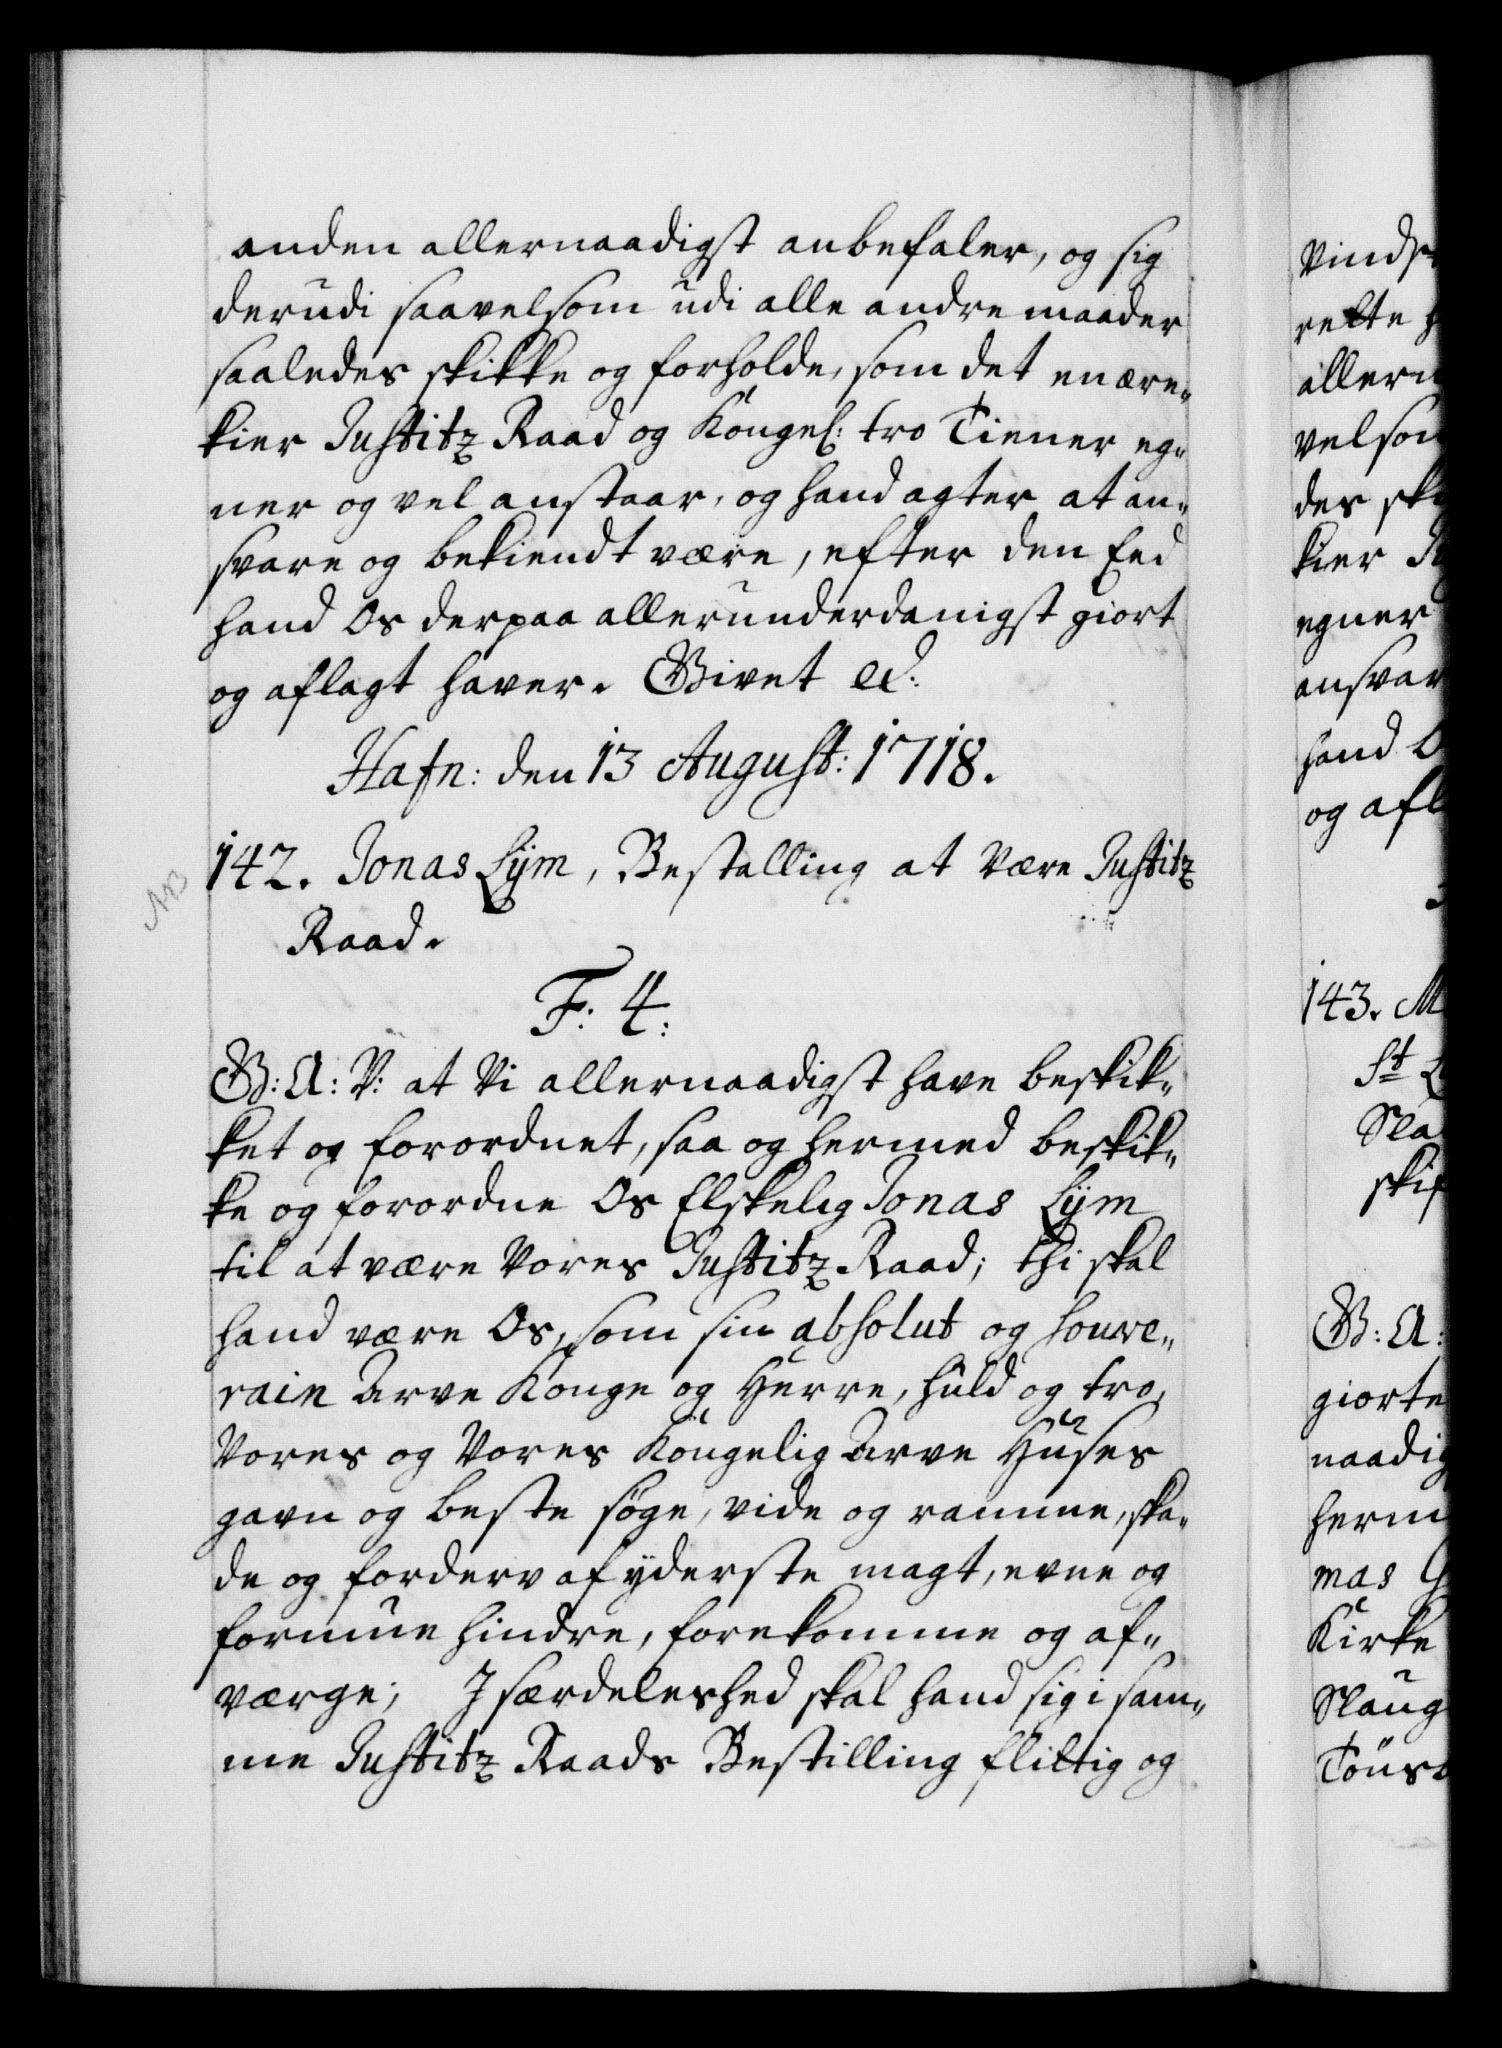 anden allernaadigst anbefaler, og sig
derudi saavelsom udi alle andre maader
saaledes skikke og forholde, som det en ære„
kier Justitz Raad og Kongel: tro Tiener eg„
ner og vel anstaar, og hand agter at an„
svare og bekiendt være, efter den Eed
hand Os derpaa allerunderdanigst giort
og aflagt haver. Givet etc:
Hafn: den 13 August: 1718.
NB
142. Jonas Lÿm, Bestalling at være Justitz
Raad.
F: 4:
G: A: V: at Vi allernaadigst have beskik„
ket og forordnet, saa og hermed beskik„
ke og forordne Os Elskelig Jonas Lÿm
til at være Vores Justitz Raad; thi skal
hand være Os, som sin absolut og souve„
rain Arve Konge og Herre, huld og tro,
Vores og Vores Kongelig Arve Huses
gavn og beste søge, vide og ramme, ska„
de og forderv af ÿderste magt, evne og
formue hindre, forekomme og af„
værge; Jsærdeleshed skal hand sig i sam„
me Justitz Raads Bestilling flittig og
rette
egner
143.
G: A:
giorte
Kirke